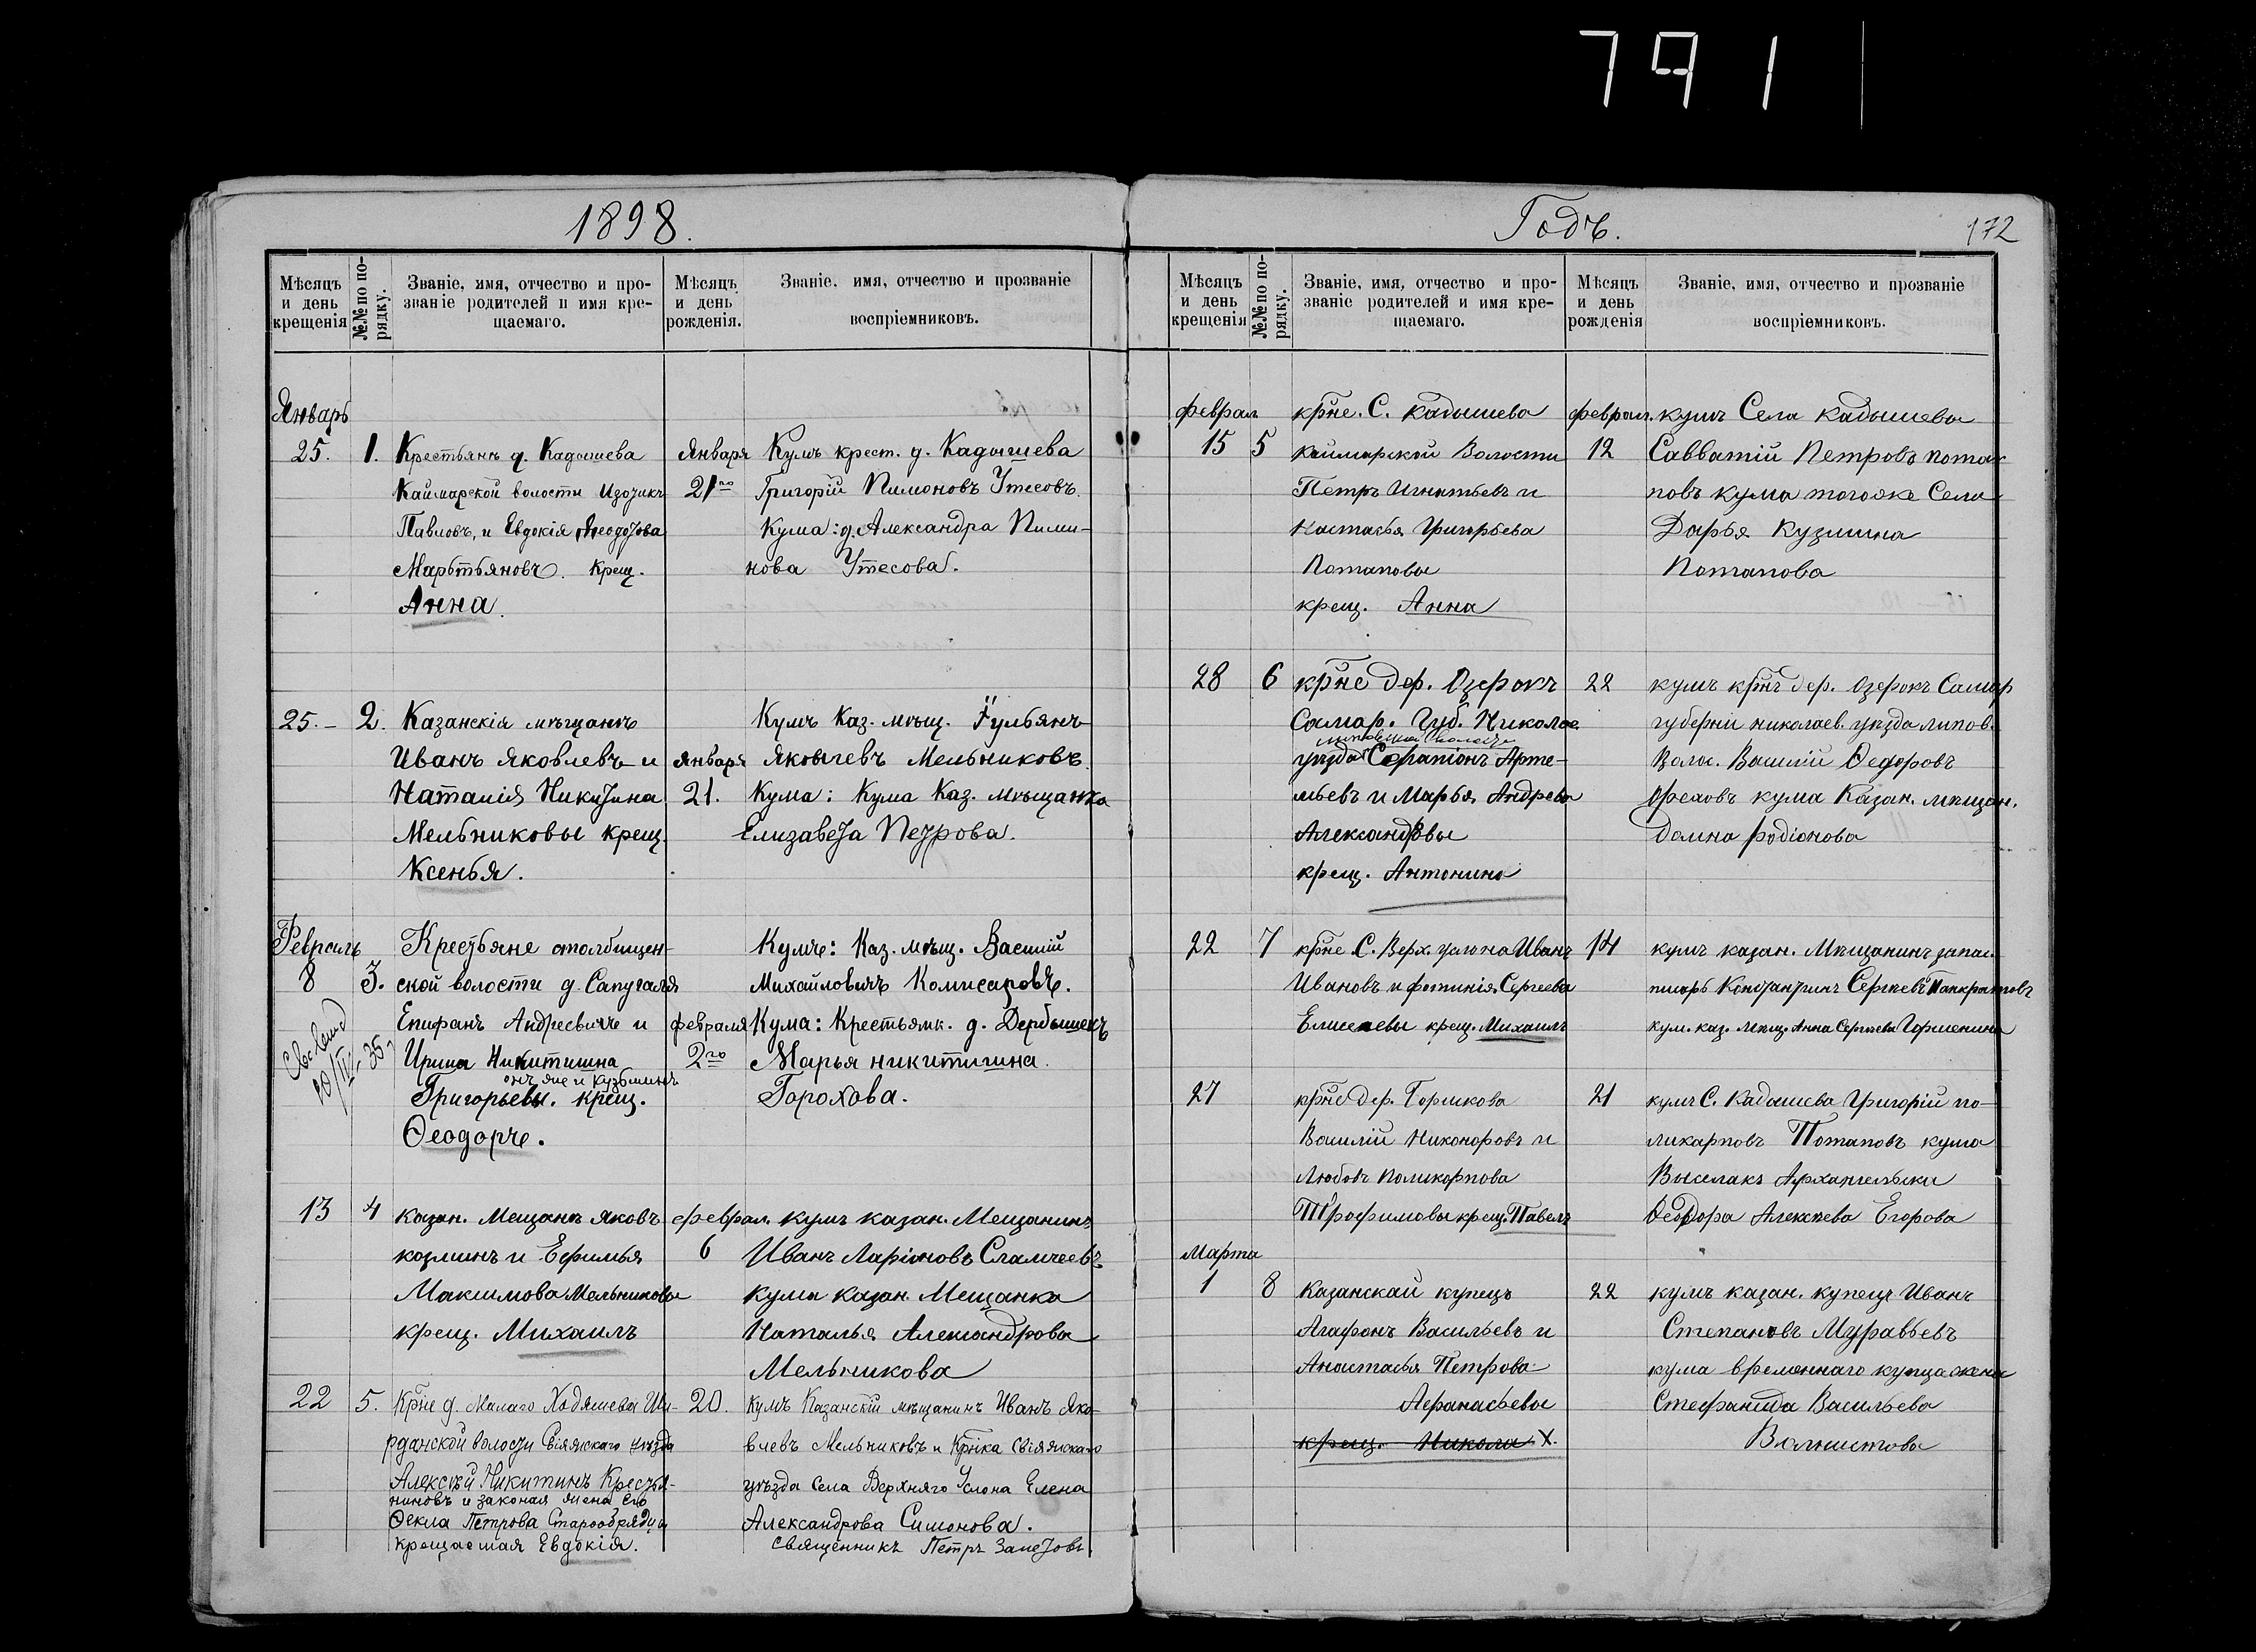 791
1898.
Мѣсяцъ и день крещенія
№№ по порядку.
Званіе, имя, отчество и прозваніе родителей и имя крещаемаго.
Мѣсяцъ и день рожденія.
Званіе, имя, отчество и прозваніе воспріемниковъ.
Январь
25. 1. Крестьянъ д. Кадышева Января Кумъ крест. д. Кадышева
Каймарской волости 21го Григорій Пимоновъ Утесовъ.
Павловъ, и Евдокія Кума: д. Александра Пими-
крещ. нова Утесова.
Анна.
25.- 2. Казанскія мѣщанъ Кумъ Каз. мѣщ.
Иванъ Яковлевъ и января Яковлевъ Мельниковъ.
Наталія Никитина 21. Кума: Кума Каз. мѣщанка
Мельниковы крещ. Елизавета Петрова.
Ксенья.
Февраль Крестьяне столбищен- Кумъ: Каз. мѣщ. Василій
8 3. ской волости д. Михайловичъ Комисаровъ.
Епифанъ Андреевичъ и февраля Кума: Крестьянк. д. Дербышекъ
Ирина Никитишна 2го Марья никитишна
онъ же и кузьминъ
Григорьевы. крещ. Горохова.
Ѳеодоръ.
13 4 казан. Мещанъ Яковъ феврал. кумъ казан. Мещанинъ
козминъ и Ефимья 6 Иванъ Ларіоновъ
Максимова Мельниковы кума казан. Мещанка
крещ. Михаилъ Наталья Александрова
Мельникова
22 5. Крне д. Малаго Ходяшева Ши- 20. Кумъ Казанскій мѣщанинъ Иванъ Яко-
рданской волости Свіяжскаго уѣзда влевъ Мельниковъ и Крнка Свіяжскаго
Алексѣй Никитинъ Крестья- уѣзда села Верхняго Услона Елена
ниновъ и законая жена его
Ѳекла Петрова Старообрядцы Александрова Симонова.
крещаемая Евдокія. Священникъ Петръ
Годъ.
172
Мѣсяцъ и день крещенія
№№ по порядку.
Званіе, имя, отчество и прозваніе родителей и имя крещаемаго.
Мѣсяцъ и день рожденія
Званіе, имя, отчество и прозваніе воспріемниковъ.
феврал крне. С. кадышева феврал. кумъ Села кадышева
15 5 каймарской Волости 12 Савватій Петровъ потап
Петръ Игнатьевъ и повъ кума тогоже Села
Настасья Григорьева Дарья Кузмина
Потаповы Потапова
крещ. Анна
28 6 крне дер. Озерокъ 22 кумъ крнъ дер. Озерокъ Самар
Самар. Губ. Николае. губерни николаев. уѣзда липов.
уѣзда Серапіонъ Арте- Волос. Василій Ѳедоровъ
мьевъ и Марья Андрева кума Казан. мѣщан.
Александровы Домна родіонова
крещ. Антонина
22 7 крне С. Верх. услона Иванъ 14 кумъ казан. Мѣщанинъ запас.
Ивановъ и фотинія Сергеева писарь Константинъ Сергѣевъ Панкратовъ
Елисеевы крещ. Михаилъ кум. каз. мѣщ. Анна Сергѣева
27 крне дер. Горшкова 21 кумъ С. Кадышева Григорій по-
Василій Никоноровъ и ликарповъ Потаповъ кума
Любовь Поликарпова Выселакъ Архангельски
Трофимовы крещ. Павелъ Ѳеодора Алексѣева Егорова
Марта
1 8 Казанскай купецъ 22 кумъ казан. купецъ Иванъ
Агафонъ Васильевъ и Степановъ Муравьевъ
Анастасья Петрова кума временнаго купца жена
Афанасьевы Стефанида Васильева
крещ. Никола X.